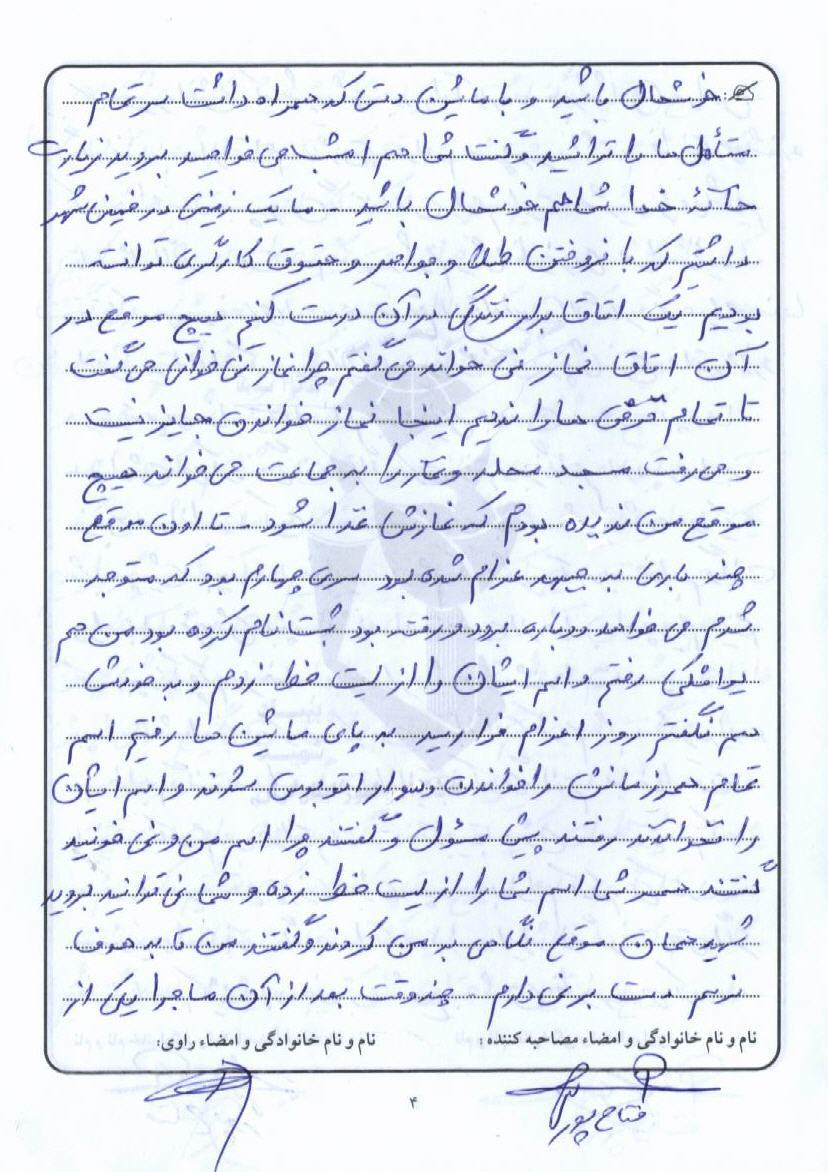 خوشحال باشید و با ماشین دستی که همراه داشت سر تمام
متأهل ها را تراشید و گفت شما هم امشب می خواهید بروید زیارت
خانهٔ خدا شما هم خوشحال باشید - ما یک زمین در خمینی شهر
داشتیم که با فروختن طلا و جواهر و حقوق کارگری توانسته
بودیم یک اتاق برای زندگی در آن درست کنیم هیچ موقع در
آن اتاق نماز نمی خواند می گفتم چرا نماز نمی خوانی می گفت
تا تمام قرض ها را ندیم اینجا نماز خواندن جایز نیست
و می رفت مسجد محله و نماز را به جماعت می خواند هیچ
موقع من ندیده بودم که نمازش قضا شود - تا اون موقع
چند باری به جبهه اعزام شده بود سری چهارم بود که متوجه
شدم می خواهد دوباره برود و رفته بود ثبت نام کرده بود من هم
یواشکی رفتم و اسم ایشان را از لیست خط زدم و به خودش
هم نگفتم روز اعزام فرا رسید به پای ماشین ها رفتیم اسم
تمام همرزمانش را خواندن و سوار اتوبوس شدند و اسم ایشان
را نخواندند رفتند پیش مسؤل و گفتند چرا اسم من و نمی خونید
گفتند همسر شما اسم شما را از لیست خط زده و شما نمی توانید بروید
شهید همان موقع نگاهی به من کردند و گفتند من تا به هدف
نرسم دست بر نمی دارم - چند وقت بعد از آن ماجرا یکی از
نام و نام خانوادگی و امضاء مصاحبه کننده: نام و نام خانوادگی و امضاء راوی:
فتاح پور
۴